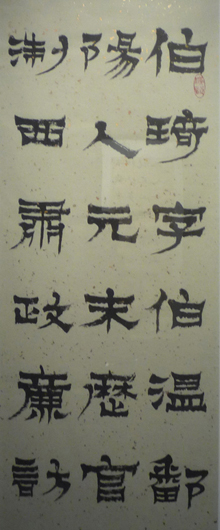 伯琦字伯温鄱
陽人元末歷官
淛西肅政廉訪